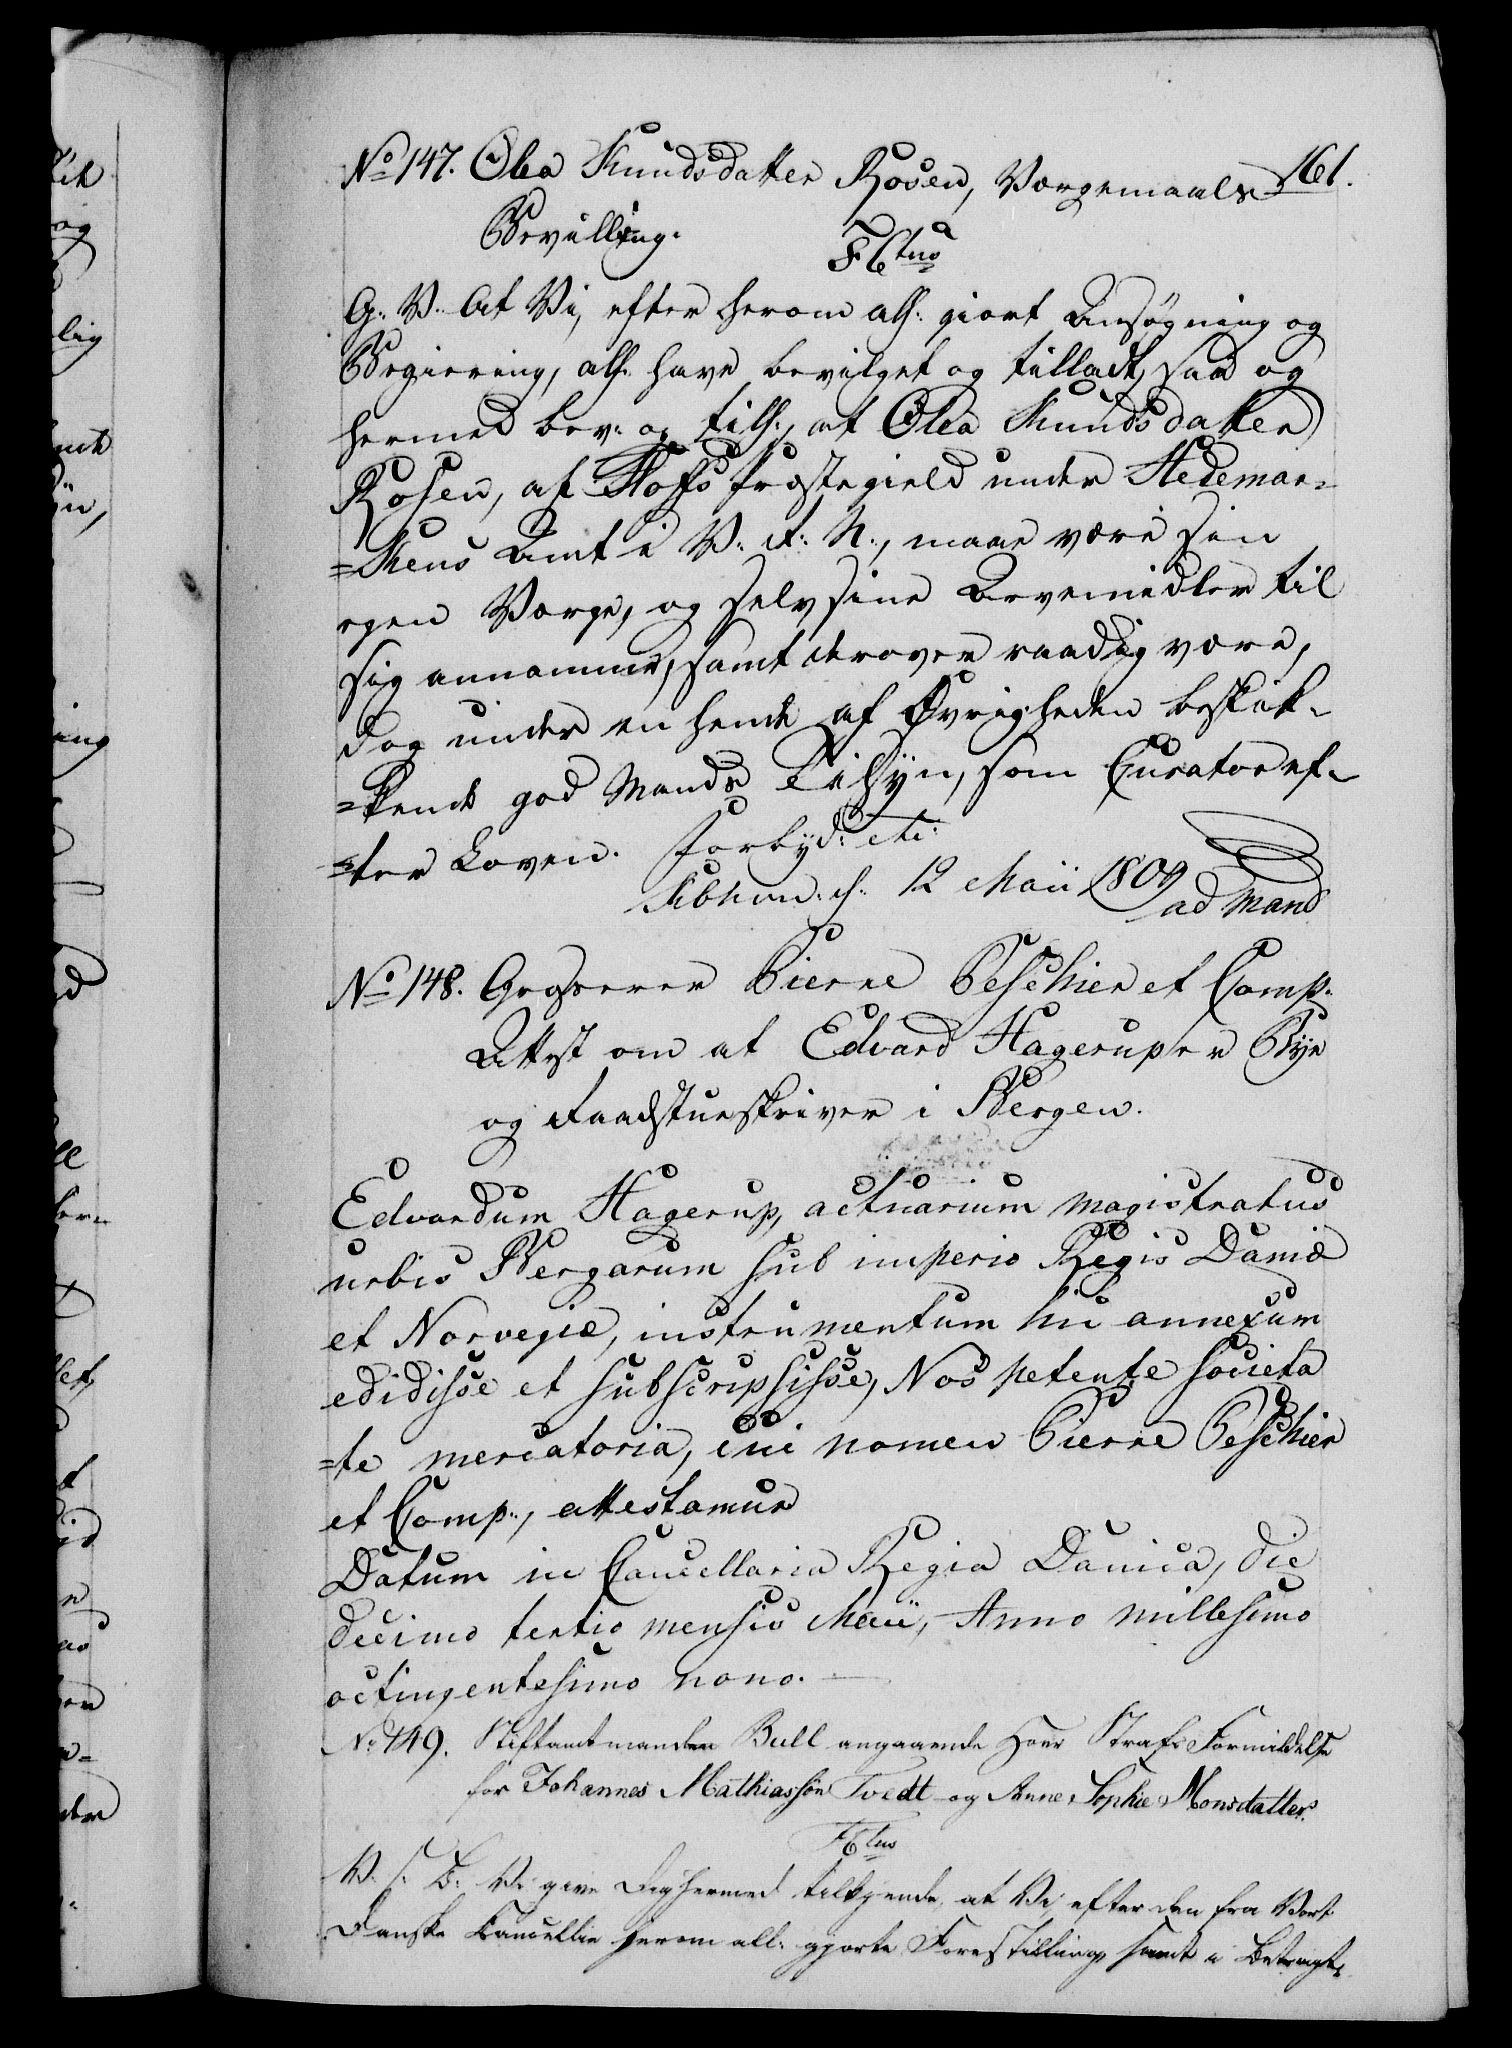 161.
No 147. Olea Knudsdatter Rosen, Værgemaals
Bevilling.
F6tus
G. V. At Vi, efter herom all: giort Ansøgning og
Begiering, all: have bevilget og tilladt, saa og
hermed bev: og till:, at Olea Knudsdatter
Rosen, af Hofs Præstegield under Hedemar-
=kens Amt i V. R: N:, maae være sin
egen Værge, og selv sine Arvemidler til
sig annamme, samt derover raadig være,
dog under en hende af Øvrigheden beskik-
=kende god Mands Tilsÿn, som Curator ef-
=ter Loven. Forbyd: etc:
Kbhvn. d. 12 Maii 1809
ad Mand
No 148. Grosserer Pierre Peschier et Comp.
Attest om at Edvard Hagerup er Bye
og Raadstueskriver i Bergen.
Edvardum Hagerup, actuarium magistratus
urbis Bergarum sub imperio Regis Daniæ
et Norvegiæ, instrumentum hic annexum
edidisse et subscripsisse, Nos petente societa
=te mercatoria, cui nomen Pierre Peschier
et Comp:, attestamur
Datum in Cancellaria Regia Danica, die
decimo tertio mensis Maii, Anno millesimo
octingentesimo nono.
No 149. Stiftamtmanden Bull angaaende Hoer Strafs Formildelse
for Johannes Mathiassøn Tvedt og Anne Sophie Monsdatter.
F6tus
V. S. B: Vi give Dig hermed tilkjende, at Vi, efter den fra Vort
Danske Cancellie herom all: gjorte Forestilling samt i Betragt-